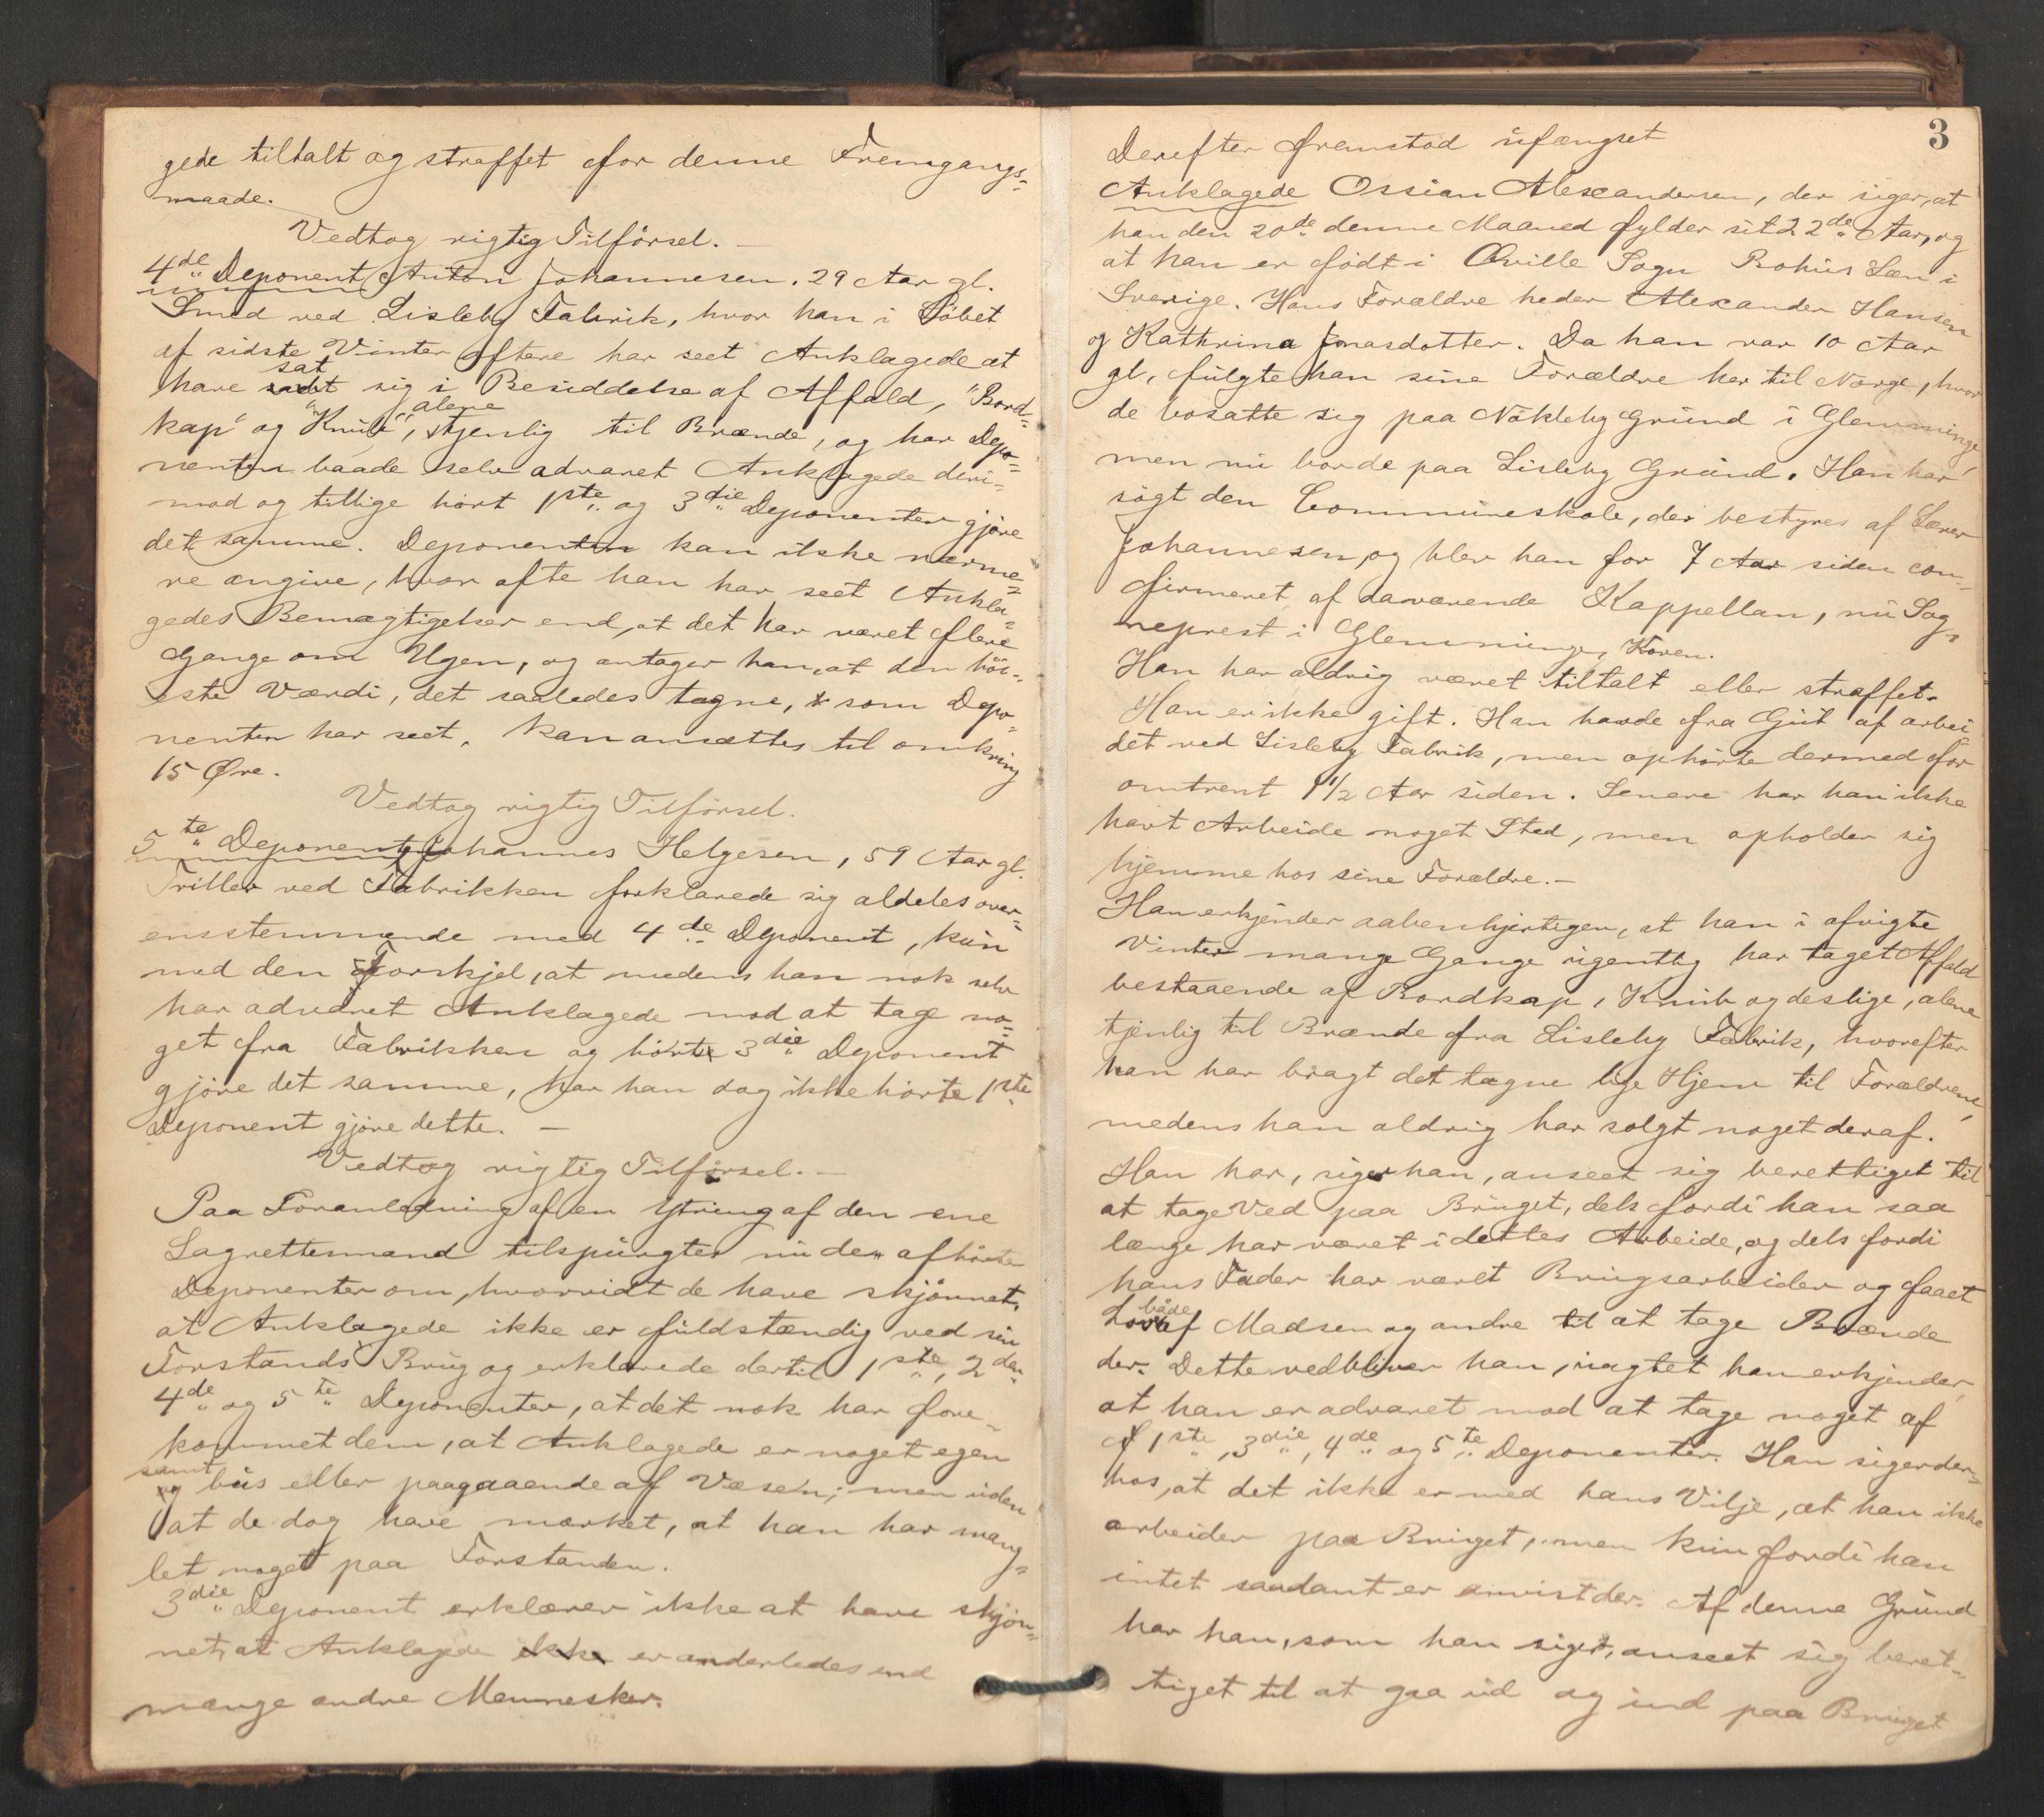 gede tiltalt og straffet for denne Fremgangs-
maade.
Vedtog rigtig Tilførsel. –
4de Deponent Anton Johannesen. 29 Aar gl.
Smed ved Lisleby Fabrik, hvor han i Løbet
af sidste Vinter oftere har seet Anklagede at
have sat sig i Besiddelse af Affald, "Bord-
kap" og "Knub", alene tjenlig til Brænde, og har Depo-
nenten baade selv advaret Anklagede deri-
mod og tillige hørt 1ste og 3die Deponenter gjøre
det samme. Deponenten kan ikke nærme-
re angive, hvor ofte han har seet Ankla-
gedes Bemægtigelser end, at det har været flere
Gange om Ugen, og antager han, at den høi-
este Værdi, det saaledes tagne, som Depo-
nenten har seet, kan ansættes til omkring
15 Øre.
Vedtog rigtig Tilførsel.
5te Deponent Johannes Helgesen, 59 Aar gl.
Triller ved Fabrikken forklarede sig aldeles over-
ensstemmende med 4de Deponent, kun
med den Forskjel, at medens han nok selv
har advaret Anklagede mod at tage no-
get fra Fabrikken og hørt 3die Deponent
gjøre det samme, har han dog ikke hørte 1ste
Deponent gjøre dette. –
Vedtog rigtig Tilførsel. –
Paa Foranledning af en Ytring af den ene
Lagrettemand tilspurgtes nu de afhørte
Deponenter om, hvorvidt de have skjønnet,
at Anklagede ikke er fuldstændig ved sin
Forstands Brug og erklærede dertil 1ste, 2den
4de og 5te Deponenter, at det nok har fore-
kommet dem, at Anklagede er noget egen
samt bus eller paagaaende af Væsen; men uden
at de dog have mærket, at han har mang-
let noget paa Forstanden.
3die Deponent erklærer ikke at have skjøn-
net, at Anklagede ikke er anderledes end
mange andre Mennesker.
3
Derefter fremstod ufængslet
Anklagede Ossian Alexandersen, der siger, at
han den 20de denne Maaned fylder sit 22de Aar, og
at han er født i Qville Sogn Bohus Læn i
Sverige. Hans Forældre heder Alexander Hansen
og Kathrina Jonasdotter. Da han var 10 Aar
gl, fulgte han sine Forældre her til Norge, hvor
de bosatte sig paa Nøkleby Grund i Glemminge,
men nu bor de paa Lisleby Grund. Han har
søgt den Communeskole, der bestyres af Lærer
Johannesen, og blev han for 7 Aar siden con-
firmeret af daværende Kappellan, nu Sog-
neprest i Glemminge, Koren.
Han har aldrig været tiltalt eller straffet.
Han er ikke gift. Han havde fra Gut af arbei-
det ved Lisleby Fabrik, men ophørte dermed for
omtrent 1 1/2 Aar siden. Senere har han ikke
havt Arbeide noget Sted, men opholder sig
hjemme hos sine Forældre. –
Han erkjender aabenhjertigen, at han i afvigte
Vinter mange Gange egentlig har taget Affald
bestaaende af Bordkap, Knub og deslige, alene
tjenlig til Brænde fra Lisleby Fabrik, hvorefter
han har bragt det tagne lige Hjem til Forældrene,
medens han aldrig har solgt noget deraf.
Han har, siger han, anseet sig berettiget til
at tage Ved paa Bruget, dels fordi han saa
længe har været i dettes Arbeide, og dels fordi
hans Fader har været Brugsarbeider og faaet
Lov både af Madsen og andre til at tage Brænde
der. Dette vedbliver han, uagtet han erkjender,
at han er advaret mod at tage noget af
af 1ste, 3die, 4de og 5te Deponenter. Han siger der-
hos, at det ikke er med hans Vilje, at han ikke
arbeider paa Bruget, men kun fordi han
intet saadant er anvist der. Af denne Grund
har han, som han siger, anseet sig beret-
tiget til at gaa ud og ind paa Bruget